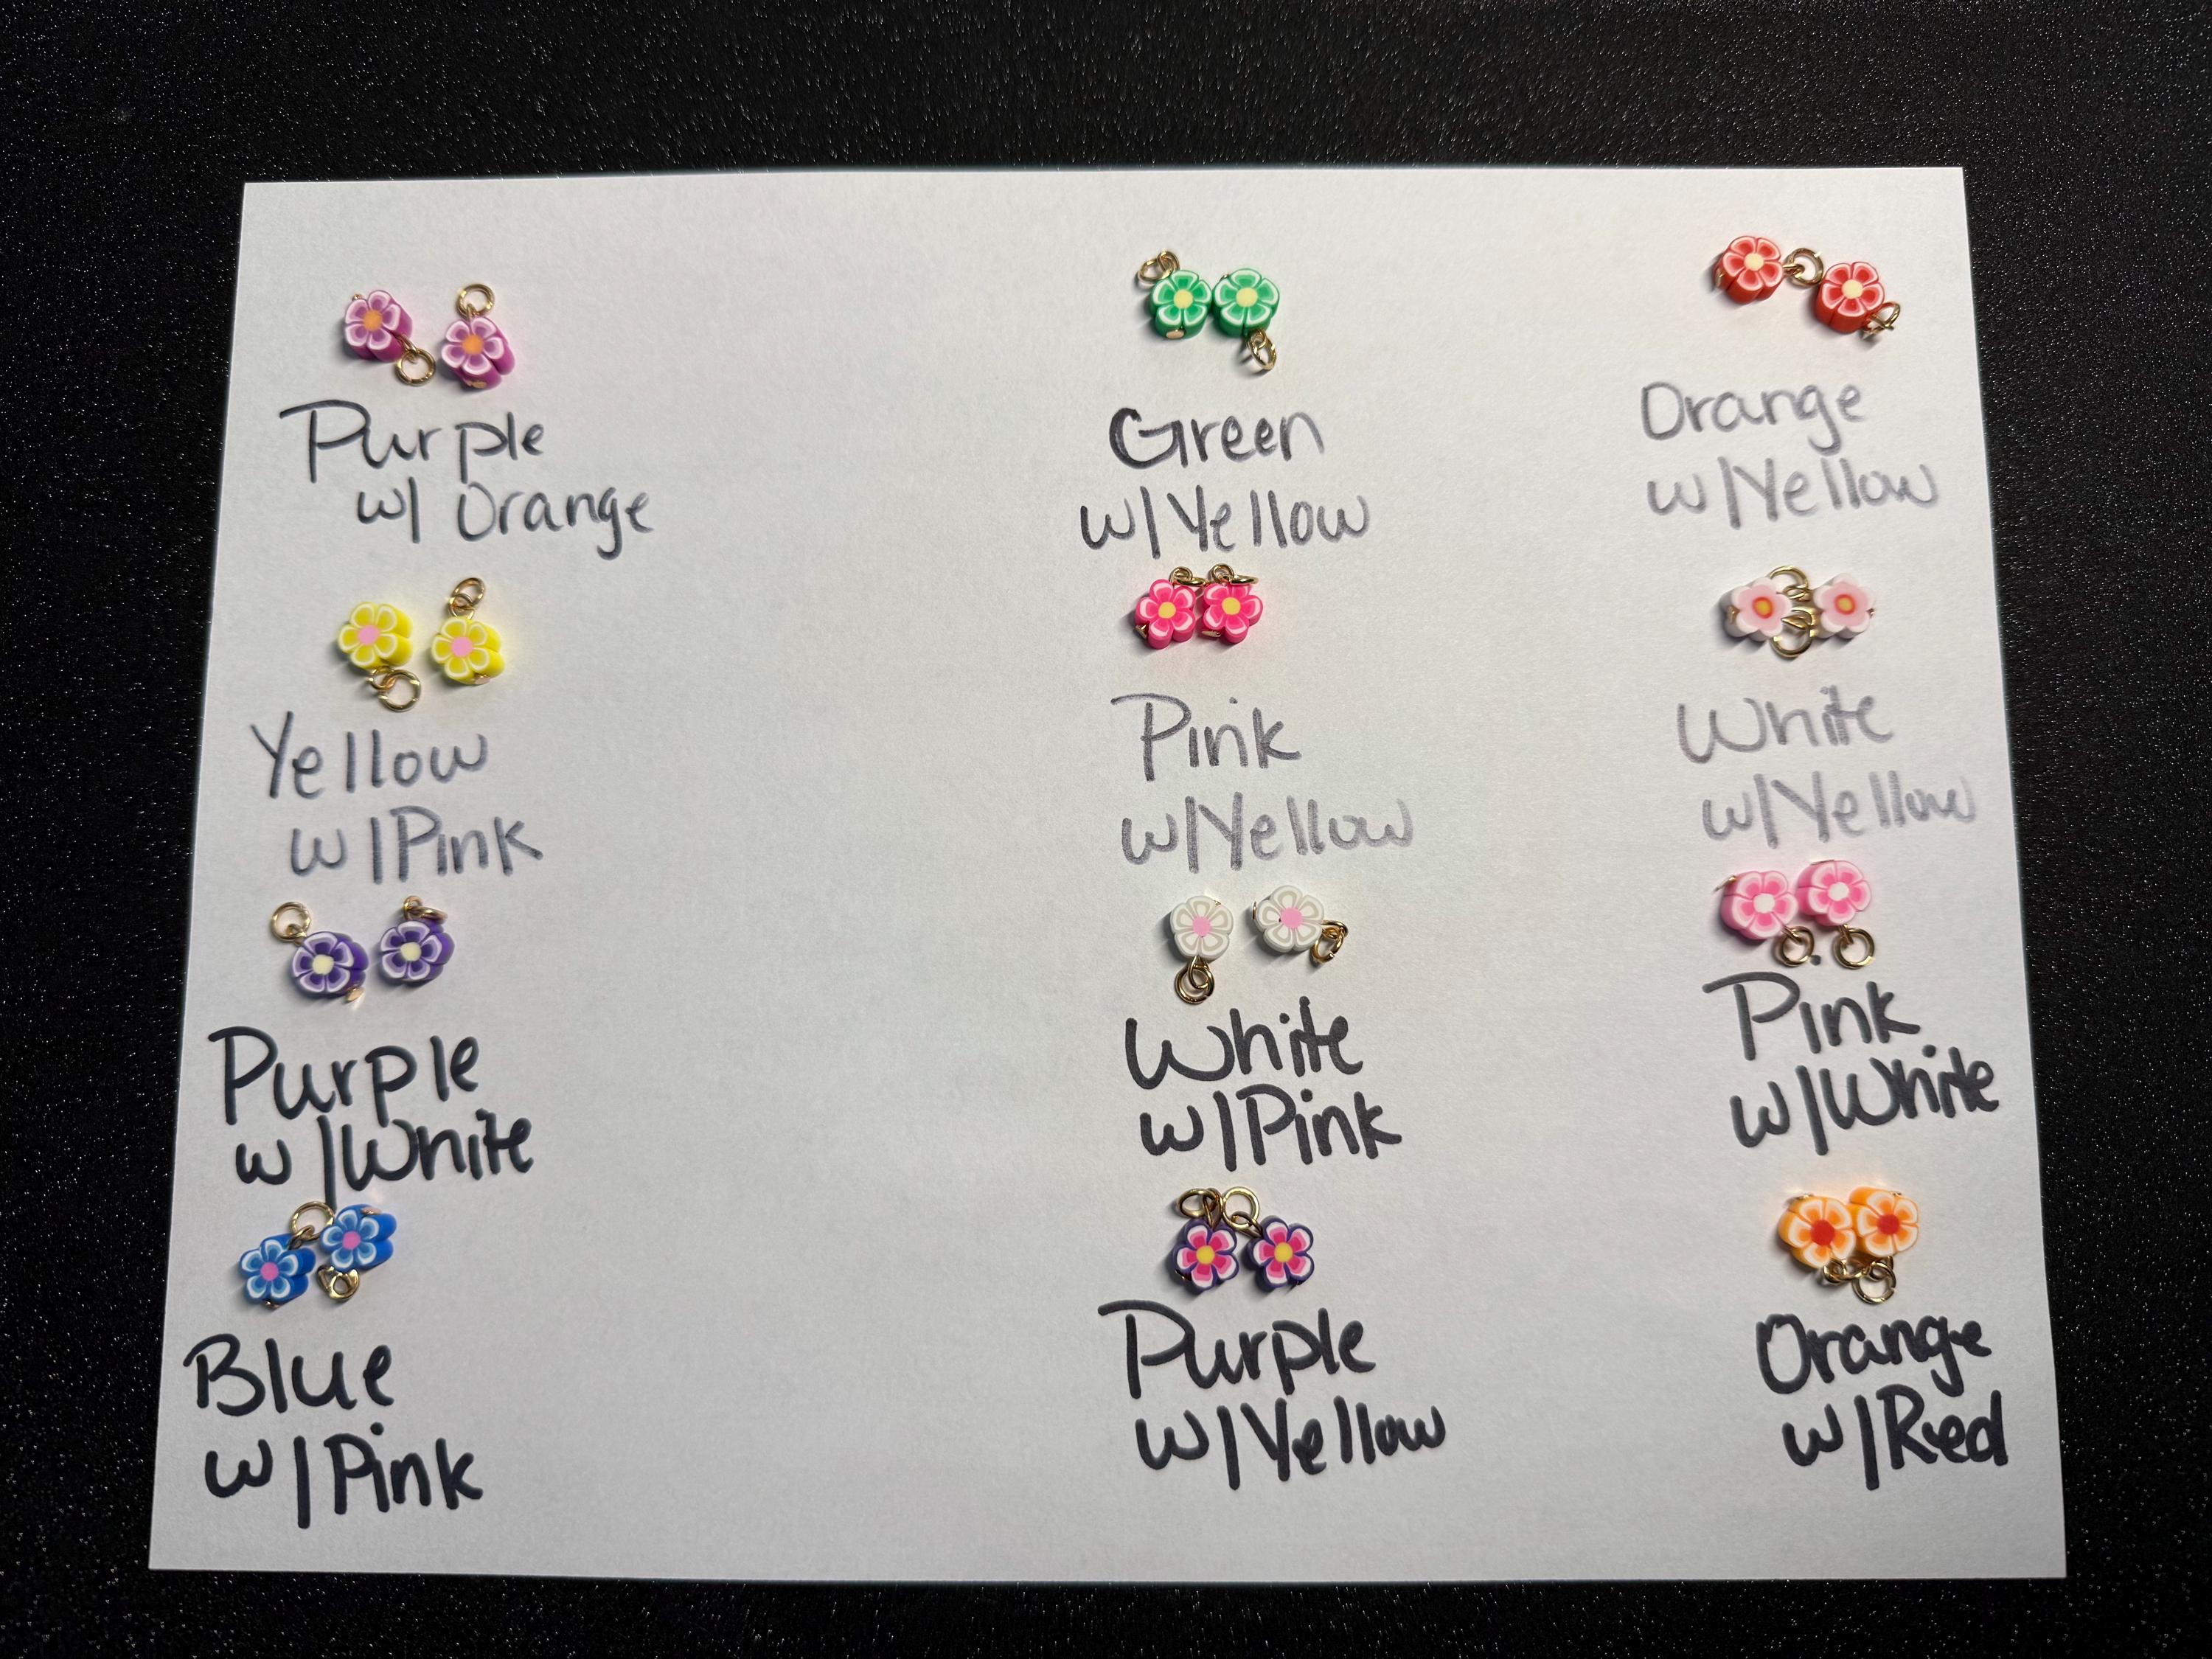 Purple
w/ Orange
Green
w/Yellow
Orange
w/Yellow
Yellow
w/Pink
Pink
w/Yellow
White
w/Yellow
Purple
w/White
White
w/Pink
Pink
w/White
Blue
w/Pink
Purple
w/Yellow
Orange
w/Red